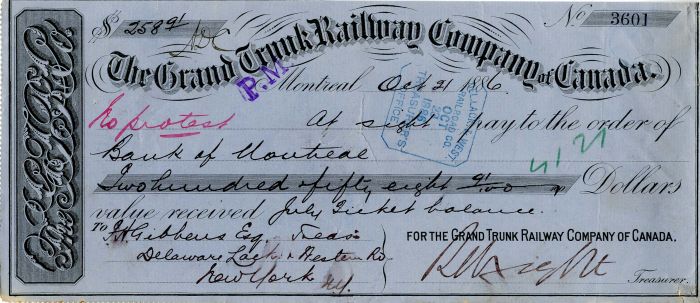 $ 258 91
No 3601
The Grand Trunk Railway Company of Canada.
P.M
Montreal Oct 21 1886
No protest
At sight pay to the order of
Bank of Montreal
Two hundred fifty eight 91/00 Dollars
value received July Ticket balance.
To F H Gibbens Esq Treas
Delaware Lack & Western Rd
New York NY.
FOR THE GRAND TRUNK RAILWAY COMPANY OF CANADA.
R Wright
Treasurer.
RAILROAD CO.
OCT
22
1886
TREASURER'S
OFFICE